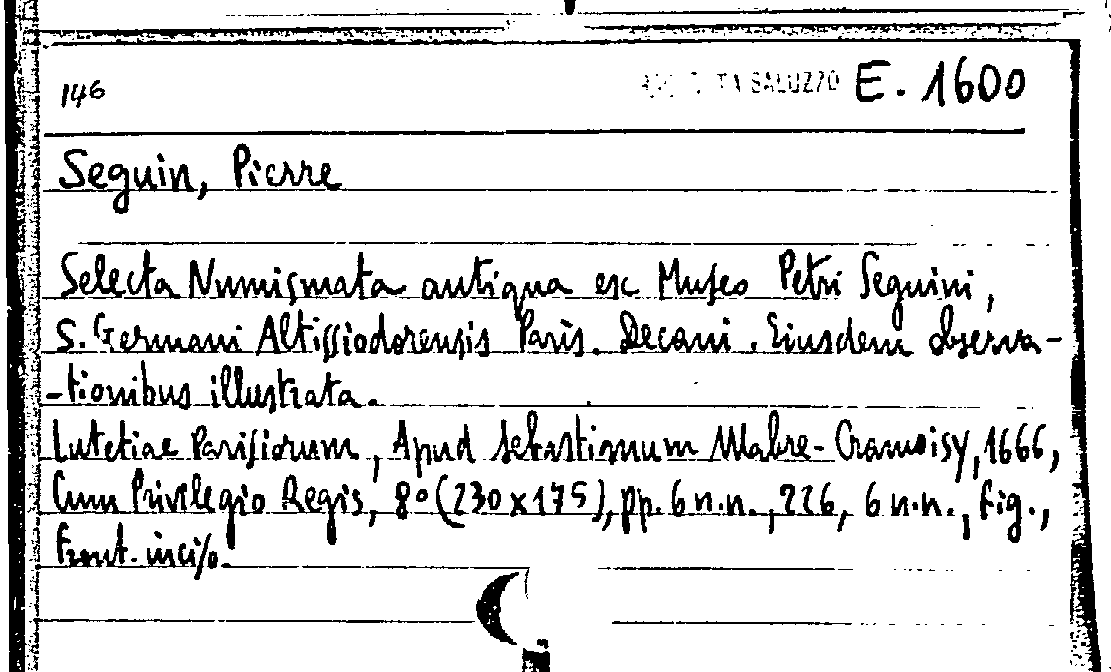 146 SALUZZO E. 1600
Seguin, Pierre
Selecta Numismata antiqua ex Museo Petri Seguini,
S. Germani Altissiodorensis Paris. Decani. Eiusdem observa-
-tionibus illustrata.
Lutetiae Parisiorum, Apud Sebastianum Mabre-Cramoisy, 1666,
Cum Privilegio Regis, 8° (230x175), pp. 6 n.n., 226, 6 n.n., fig.,
front. inciso.